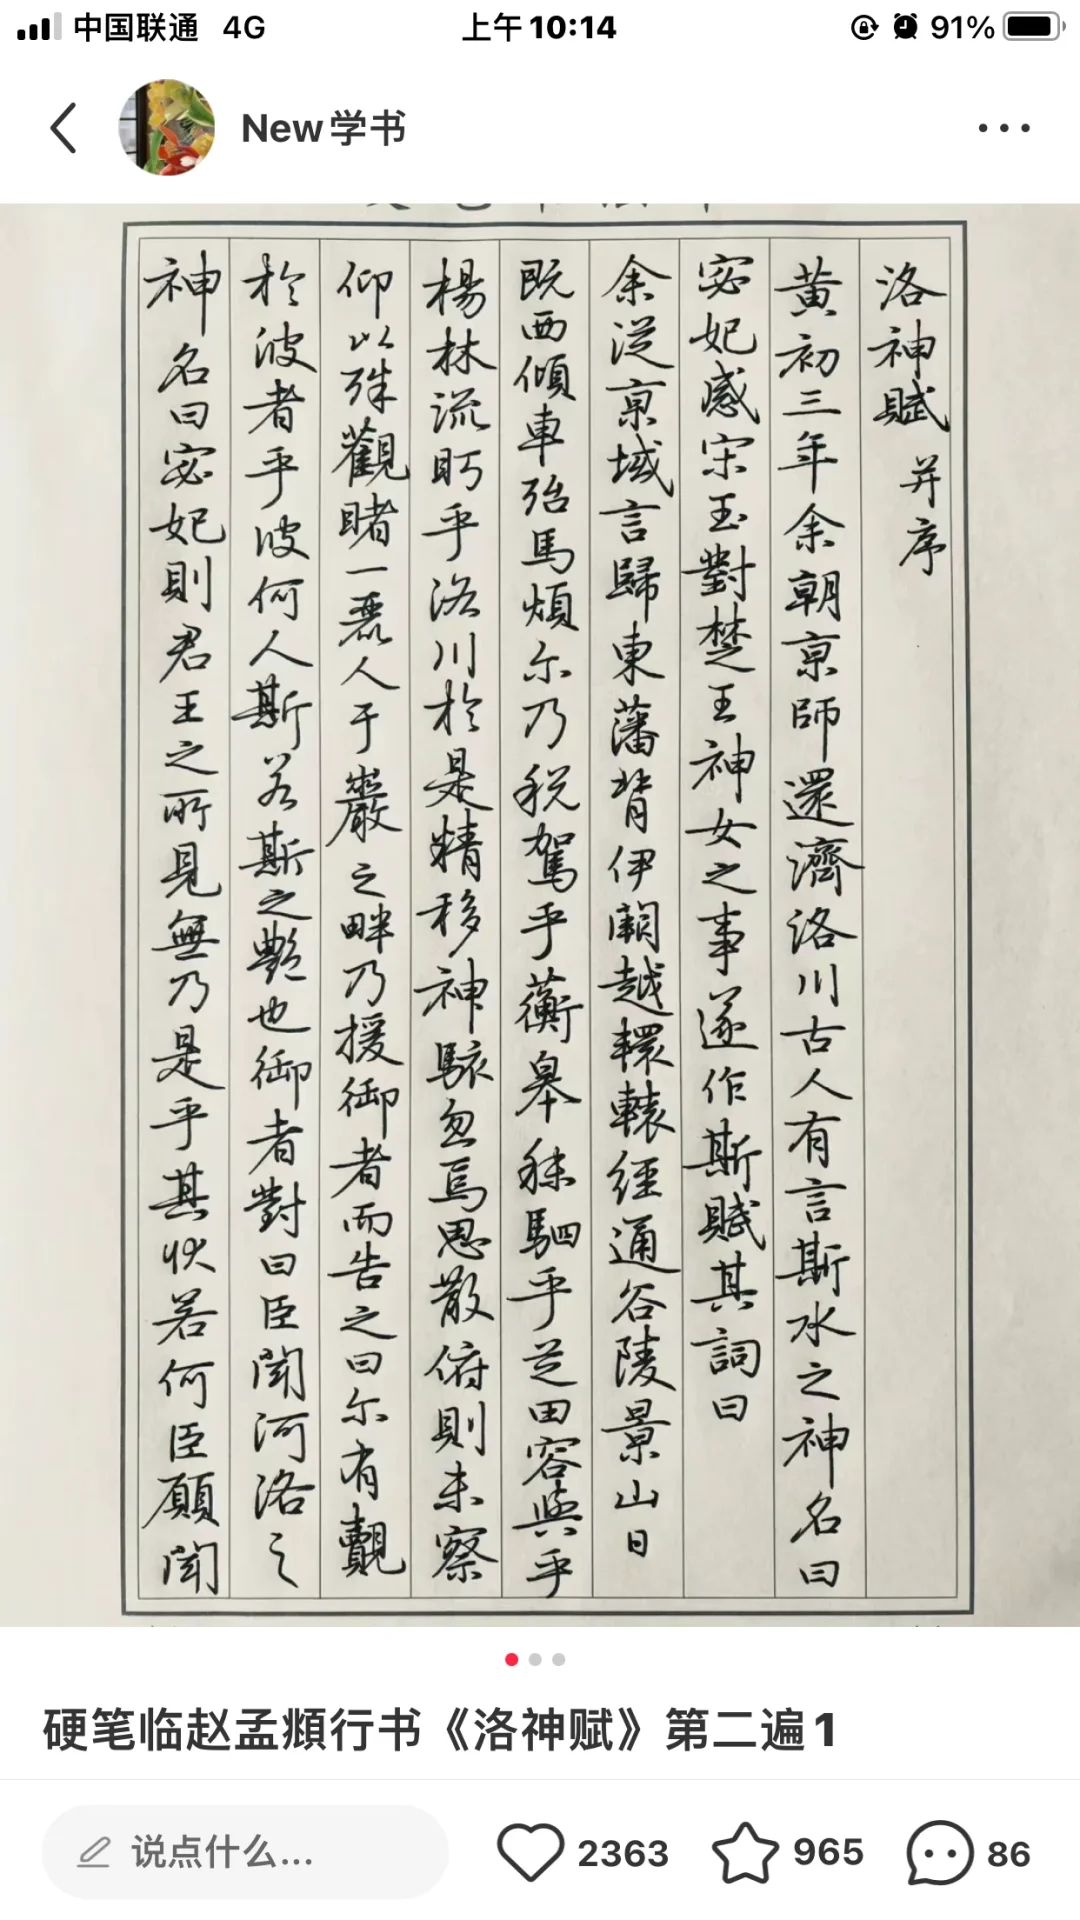 中国联通 4G 上午10:14 91%
New学书
洛神賦 并序
黄初三年余朝京師還濟洛川古人有言斯水之神名曰
宓妃感宋玉對楚王神女之事遂作斯賦其詞曰
余從京域言歸東藩背伊闕越轘轅經通谷陵景山日
既西傾車殆馬煩尔乃税駕乎蘅皋秣駟乎芝田容與乎
楊林流眄乎洛川於是精移神駭忽焉思散俯則未察
仰以殊觀睹一麗人于巖之畔乃援御者而告之曰尔有觀
於彼者乎彼何人斯若斯之艶也御者對曰臣聞河洛之
神名曰宓妃則君王之所見無乃是乎其状若何臣願聞
硬笔临赵孟頫行书《洛神赋》第二遍1
说点什么...
2363
965
86